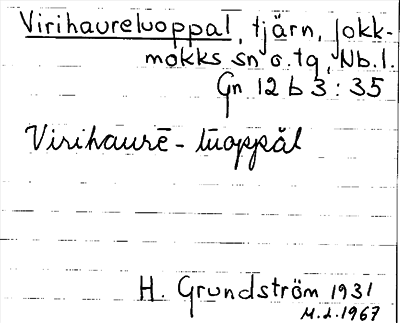 Virihaureluoppal, tjärn, Jokk-
mokks sn o. tg, Nb. l.
Gn 12 b 3 : 35
Virihaurē - lūoppăl
H. Grundström 1931
M.L. 1967